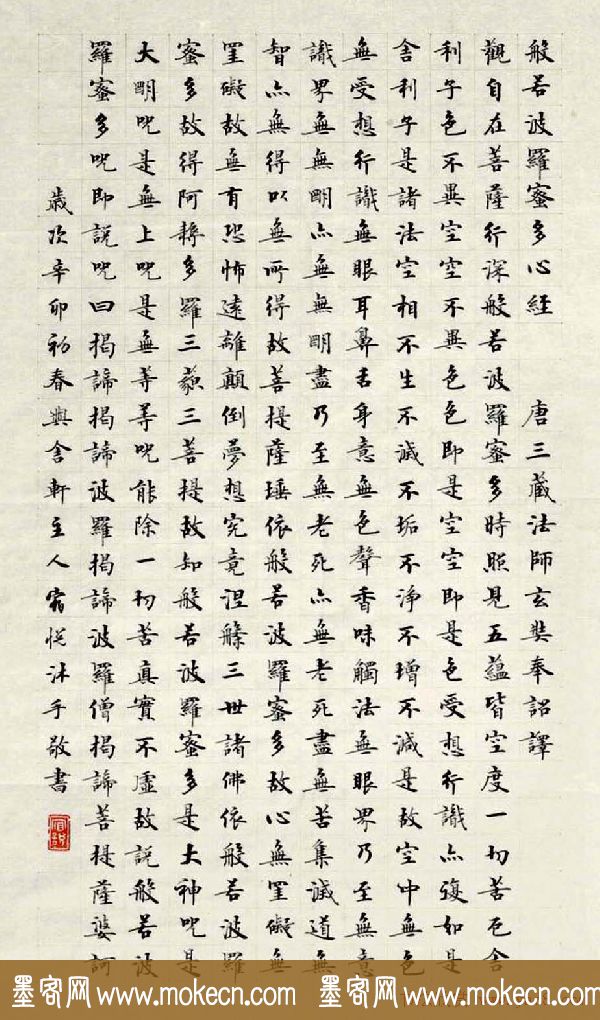 般若波羅蜜多心經　唐三藏法師玄奘奉詔譯
觀自在菩薩行深般若波羅蜜多時照見五蘊皆空度一切苦厄舍
利子色不異空空不異色色即是空空即是色受想行識亦復如是
舍利子是諸法空相不生不滅不垢不淨不增不減是故空中無色
無受想行識無眼耳鼻舌身意無色聲香味觸法無眼界乃至無意
識界無無明亦無無明盡乃至無老死亦無老死盡無苦集滅道無
智亦無得以無所得故菩提薩埵依般若波羅蜜多故心無罣礙無
罣礙故無有恐怖遠離顛倒夢想究竟涅槃三世諸佛依般若波羅
蜜多故得阿耨多羅三藐三菩提故知般若波羅蜜多是大神咒是
大明咒是無上咒是無等等咒能除一切苦真實不虛故說般若波
羅蜜多咒即說咒曰揭諦揭諦波羅揭諦波羅僧揭諦菩提薩婆訶
歲次辛卯初春與舍軒主人宿悅沐手敬書
墨客网 www.mokecn.com 墨客网 www.mokecn.com